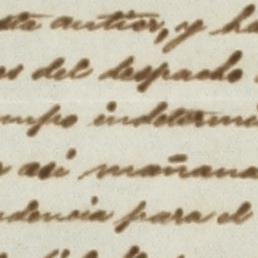 sta autior, y ha
os del despacho
mpo indetermi
asi mañana
dencia para el